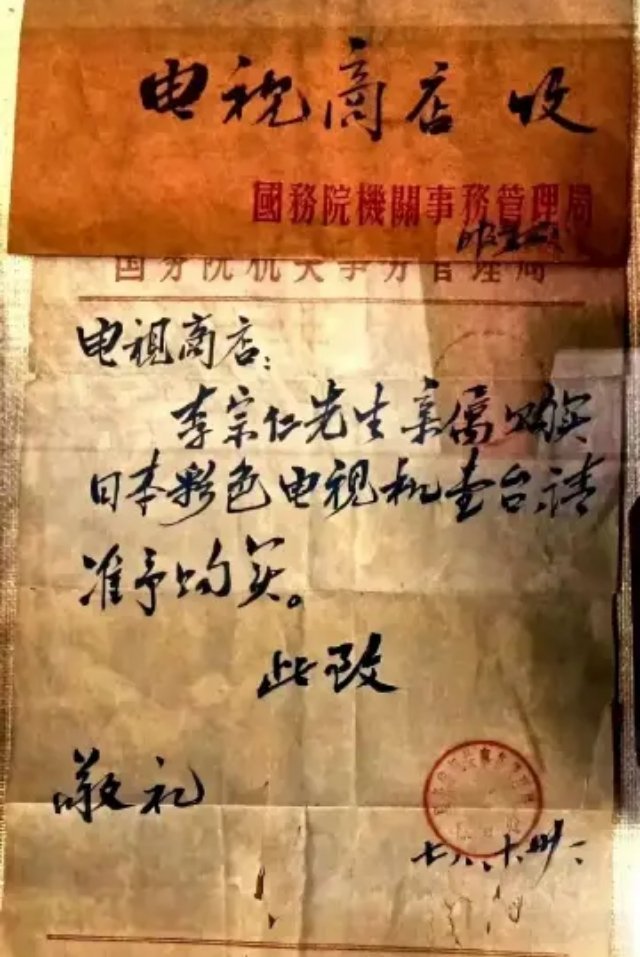 电视商店 收
國務院機關事務管理局
国务院机关事务管理局
电视商店：
李宗仁先生亲属购买
日本彩色电视机壹台，请
准予购买。
此致
敬礼
七八、十